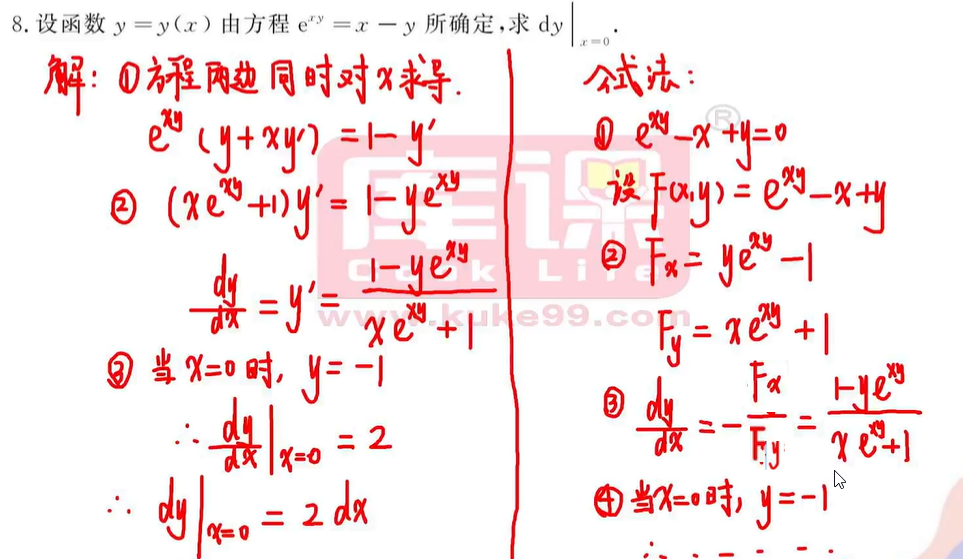 8. 设函数 y=y(x) 由方程 e^{xy}=x-y 所确定,求 dy|_{x=0}.
解: ①方程两边同时对x求导.
e^{xy}(y+xy')=1-y'
② (xe^{xy}+1)y'=1-ye^{xy}
dy/dx=y'=(1-ye^{xy})/(xe^{xy}+1)
③ 当x=0时, y=-1
∴ dy/dx|_{x=0}=2
∴ dy|_{x=0}=2dx
公式法:
① e^{xy}-x+y=0
设F(x,y)=e^{xy}-x+y
② F_x=ye^{xy}-1
F_y=xe^{xy}+1
③ dy/dx=-F_x/F_y=(1-ye^{xy})/(xe^{xy}+1)
④ 当x=0时, y=-1
∴ - - - - -
库课®
Cook Life
www.kuke99.com